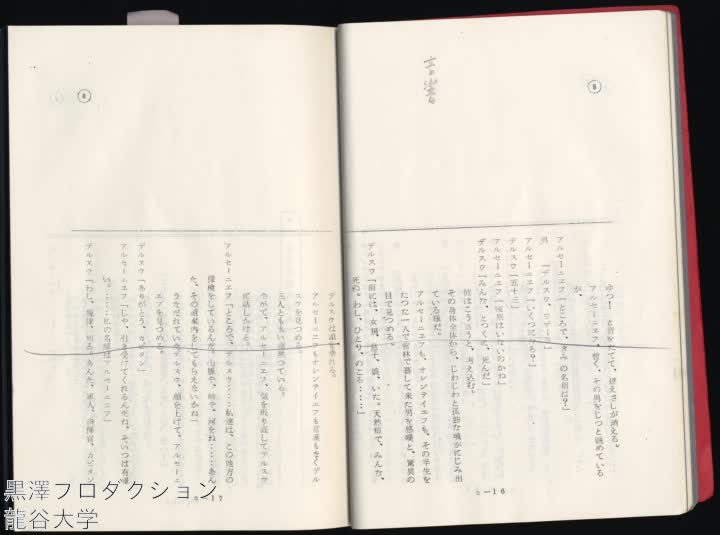 音響
8
ゆつ! と音をたてて、燃えさしが消える。
アルセーニエフ、暫く、その男をじつと眺めている
が、
アルセーニエフ「ところで、きみの名前は?」
男　「デルスウ、ウザーラ」
アルセーニエフ「いくつになる?」
デルスウ「五十三」
アルセーニエフ「家族はいないのかね」
デルスウ「みんな、とつくに、死んだ」
彼はこう言うと、考え込む。
その身体全体から、じわじわと孤独な魂がにじみ出
ている様だ。
アルセーニエフも、オレンテイエフも、その半生を
たつた一人で密林で暮して来た男を感嘆と、驚異の
目で見つめる。
デルスウ「前には、女房、息子、娘、いた。天然痘で、みんな、
死ぬ。わし、ひとり、のこる‥‥」
c-16
8
デルスウは頭を垂れる。
アルセーニエフもオレンテイエフも言葉もなくデル
スウを見つめる。
三人とも長い間黙つている。
やがて、アルセーニエフ、気を取り直してデルスウ
に話しかける。
アルセーニエフ「ところで、デルスウ‥‥私達は、この地方の
探検をしているんだ。山脈や、峠や、河をね‥‥あん
た、その道案内をしてもらえないかね」
うなだれていたデルスウ、顔を上げて、アルセーニ
エフを見つめる。
デルスウ「ありがとう、カピタン」
アルセーニエフ「じゃ、引き受けてくれるんだね、そいつは有難
い。‥‥私の名前はアルセーニエフ」
デルスウ「わし、規律、知る。あんた、軍人、指揮官、カピタン
c-17
黒澤プロダクション
龍谷大学